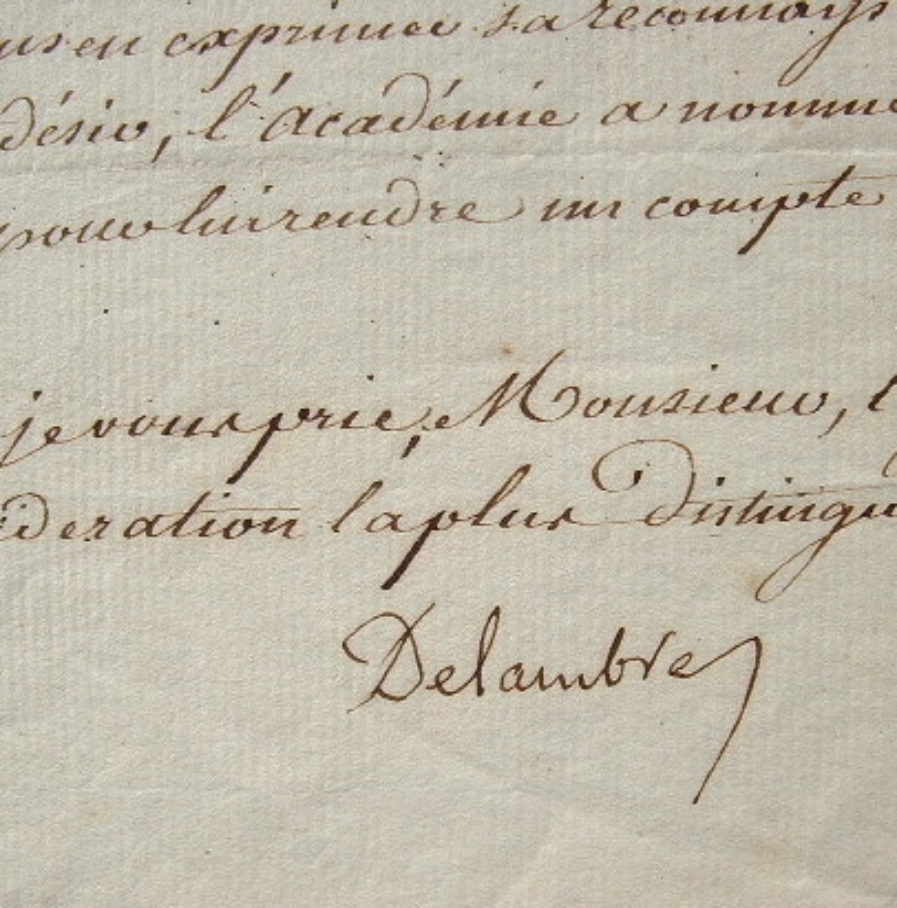 en exprimer sa reconnays
désir, l'académie a nommé
pour lui rendre un compte
je vous prie, Monsieur, l
dération la plus Distingu
Delambre